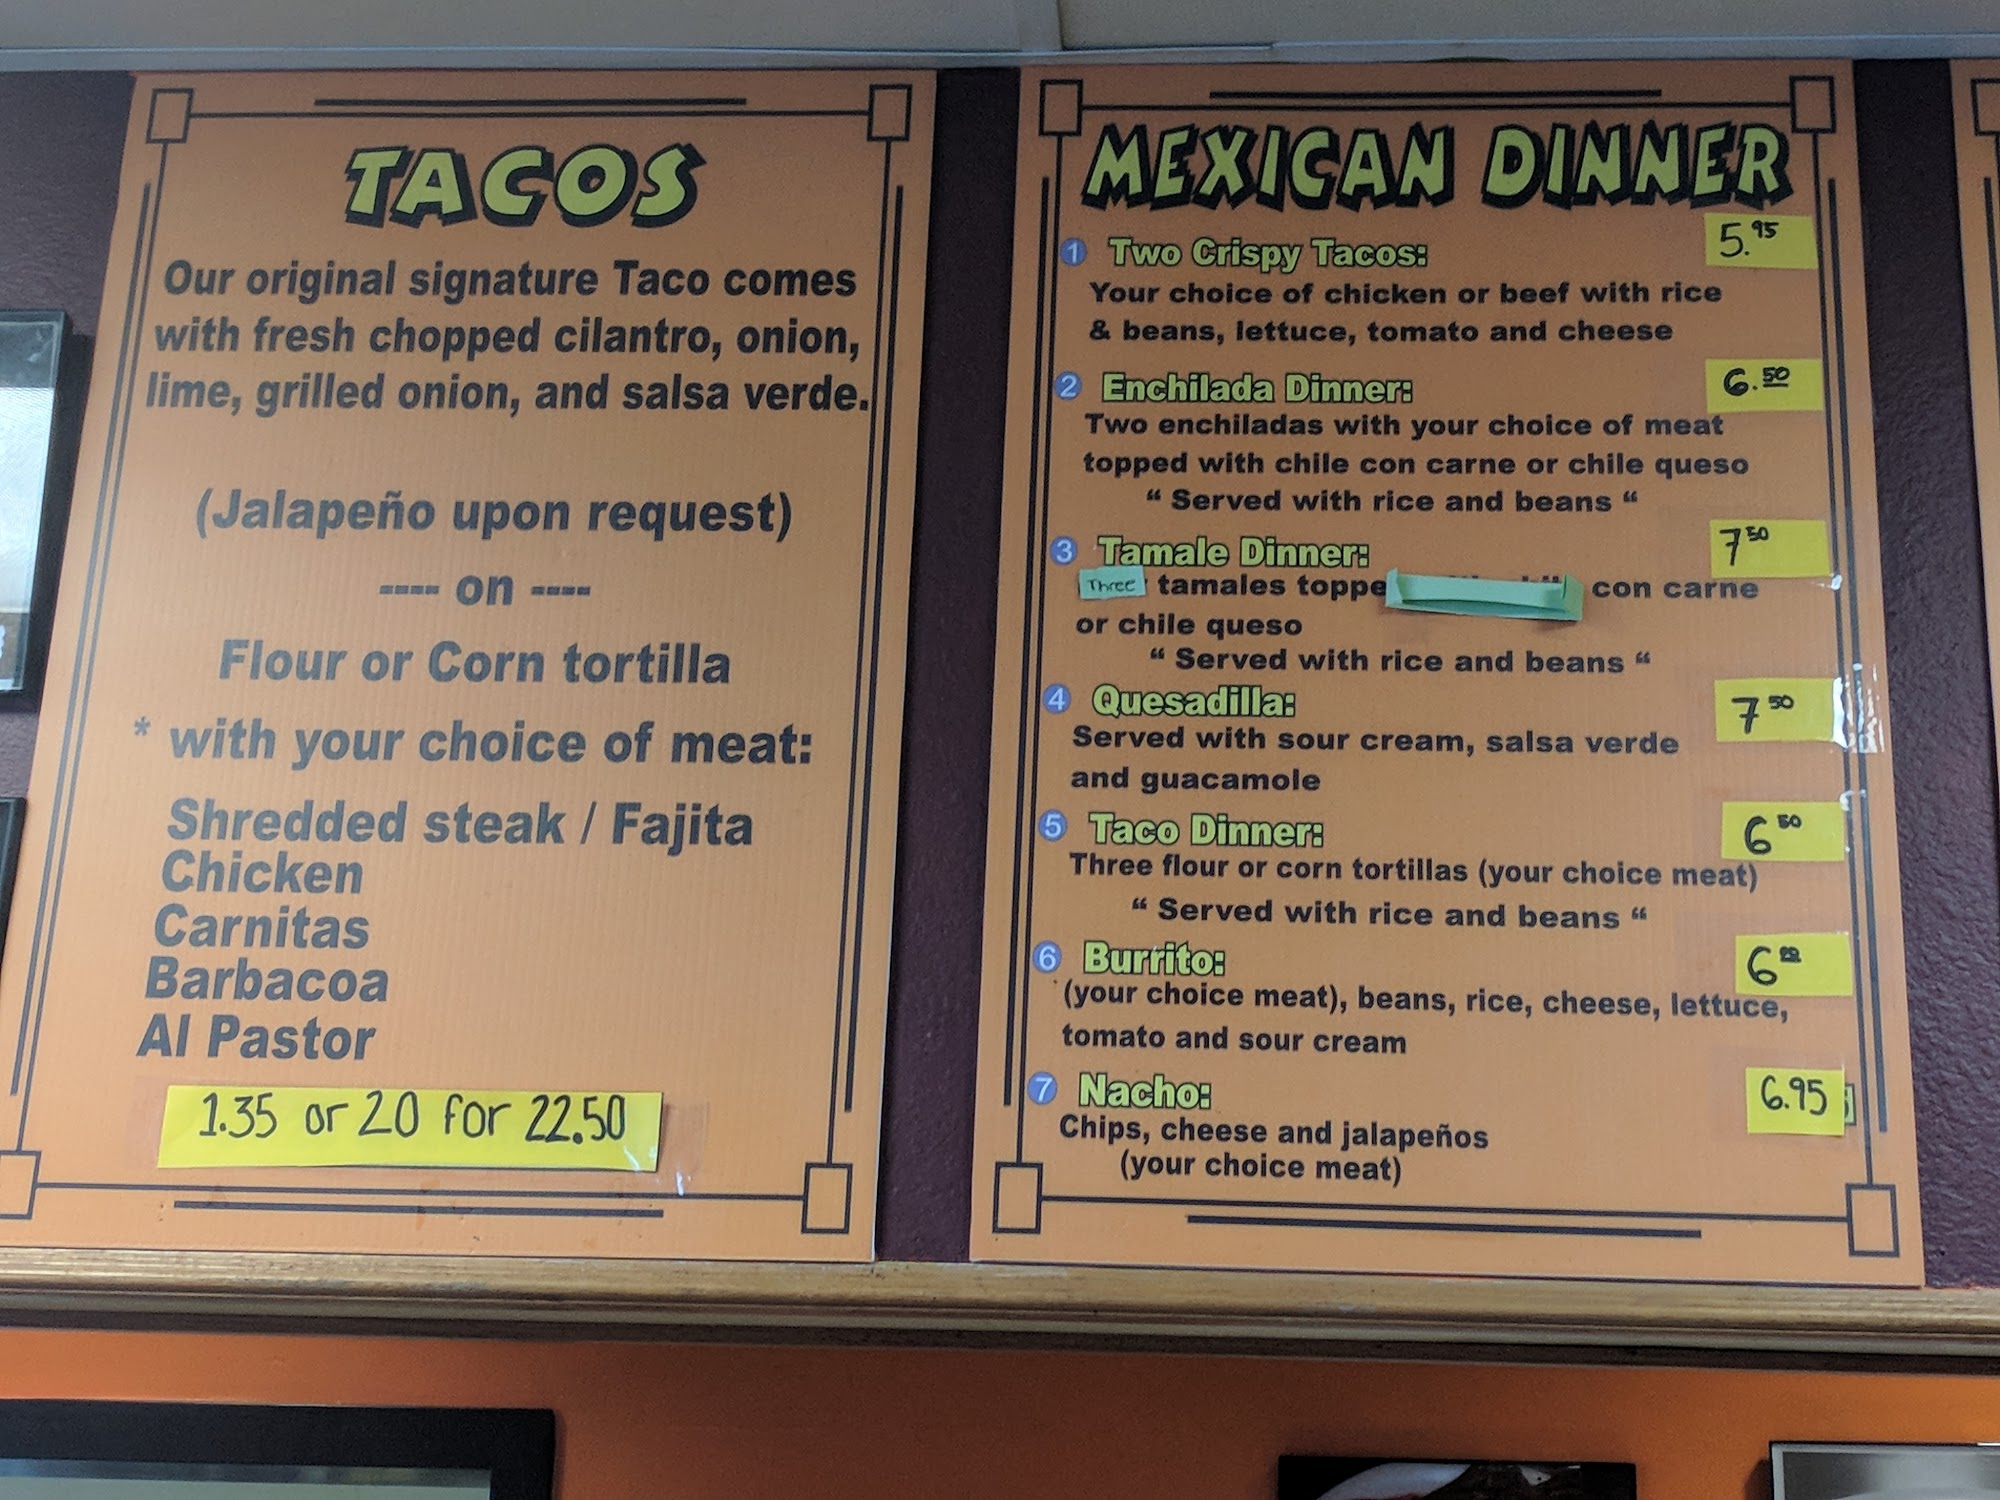 TACOS
Our original signature Taco comes
with fresh chopped cilantro, onion,
lime, grilled onion, and salsa verde.
(Jalapeño upon request)
---- on ----
Flour or Corn tortilla
* with your choice of meat:
Shredded steak / Fajita
Chicken
Carnitas
Barbacoa
Al Pastor
1.35 or 20 for 22.50
MEXICAN DINNER
1 Two Crispy Tacos: 5.95
Your choice of chicken or beef with rice
& beans, lettuce, tomato and cheese
2 Enchilada Dinner: 6.50
Two enchiladas with your choice of meat
topped with chile con carne or chile queso
“ Served with rice and beans “
3 Tamale Dinner: 7 50
Three tamales toppe con carne
or chile queso
“ Served with rice and beans “
4 Quesadilla: 7 50
Served with sour cream, salsa verde
and guacamole
5 Taco Dinner: 6 50
Three flour or corn tortillas (your choice meat)
“ Served with rice and beans “
6 Burrito: 6
(your choice meat), beans, rice, cheese, lettuce,
tomato and sour cream
7 Nacho: 6.95
Chips, cheese and jalapeños
(your choice meat)